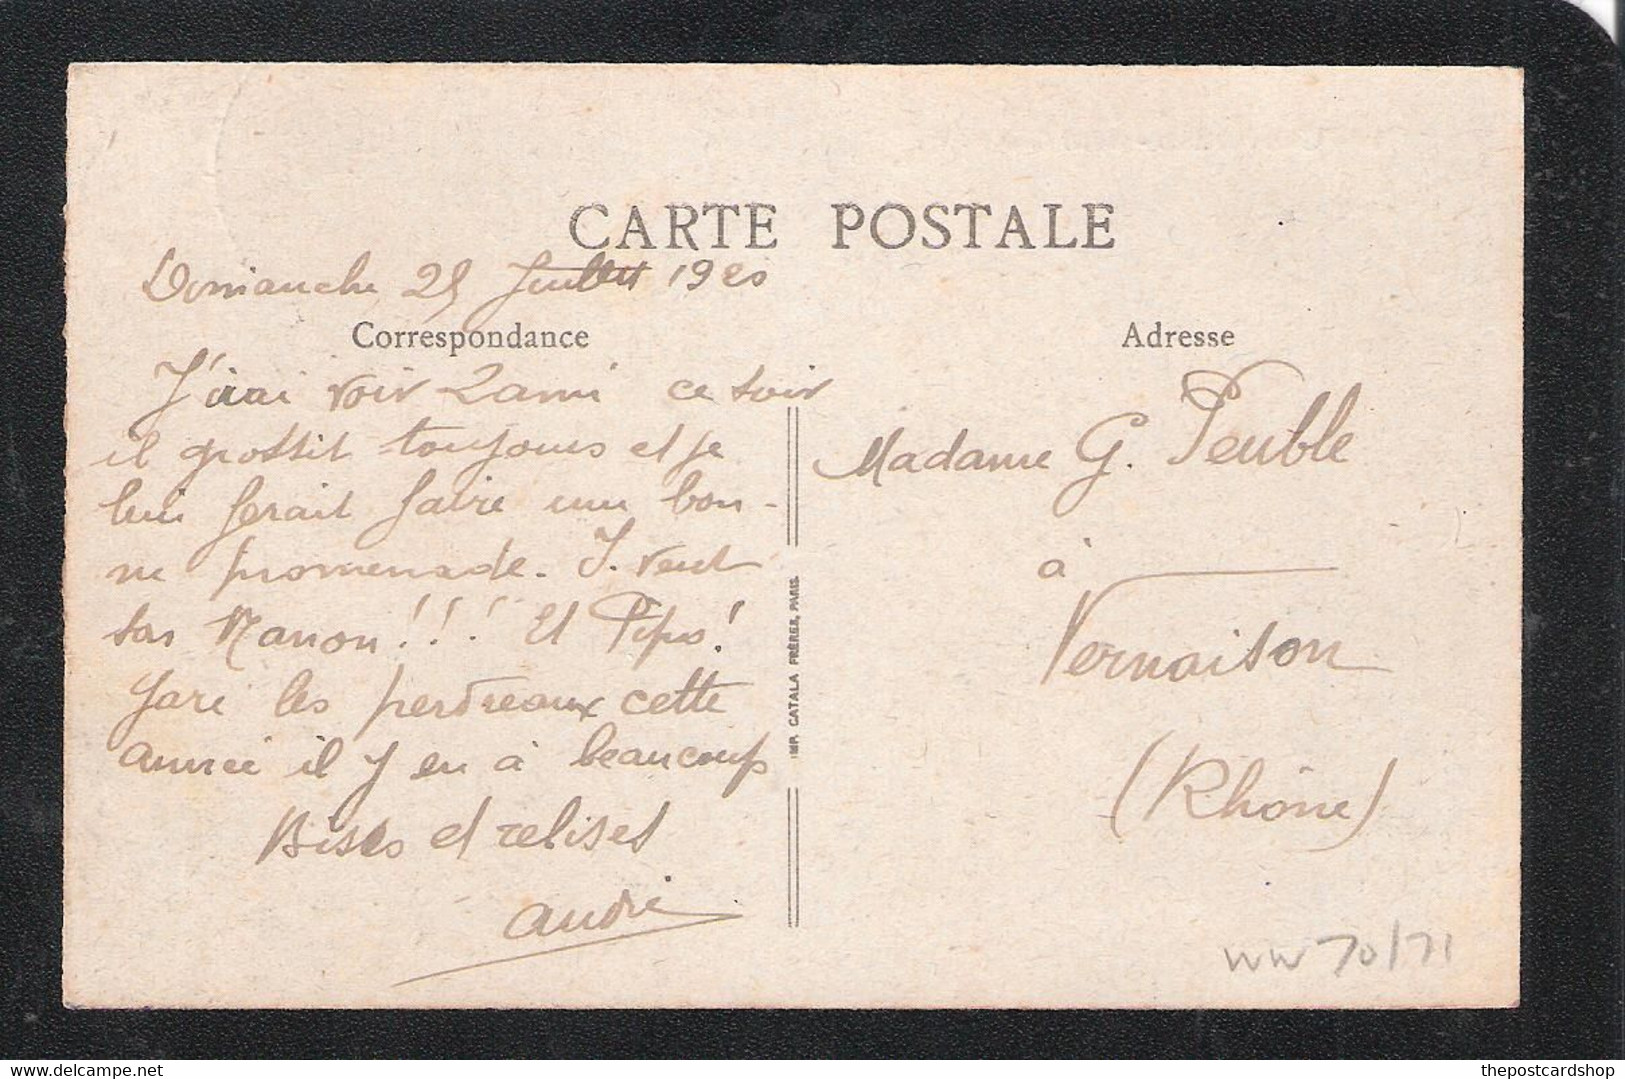 CARTE POSTALE
Dimanche 25 Juillet 1920
Correspondance
J'irai voir l'ami ce soir
il grossit toujours et je
lui ferait faire une bon-
ne promenade. I. veut
sa Manon!!! Et Pipo!
Gare les perdreaux cette
année il y en à beaucoup
Bises et rebises
André
IMP. CATALA FRÈRES, PARIS.
Adresse
Madame G. Peuble
à
Vernaison
(Rhône)
WW 70/71
thepostcardshop
Delcampe.net